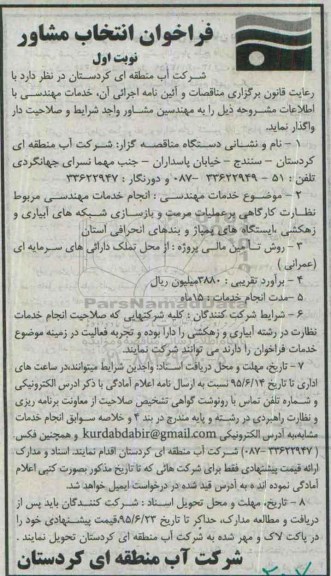 فراخوان انتخاب مشاور
نوبت اول
شرکت آب منطقه ای کردستان در نظر دارد با
رعایت قانون برگزاری مناقصات و آئین نامه اجرائی آن، خدمات مهندسی با
اطلاعات مشروحه ذیل را به مهندسین مشاور واجد شرایط و صلاحیت دار
واگذار نماید.
۱ - نام و نشانی دستگاه مناقصه گزار: شرکت آب منطقه ای
کردستان - سنندج - خیابان پاسداران - جنب مهما نسرای جهانگردی
تلفن : ۵۱ - ۳۳۶۲۲۹۴۹ -۰۸۷ و دورنگار : ۳۳۶۲۲۹۴۷
۲ - موضوع خدمات مهندسی : انجام خدمات مهندسی مربوط
نظارت کارگاهی برعملیات مرمت و بازسازی شبکه های آبیاری و
زهکشی ،ایستگاه های پمپاژ و بندهای انحرافی استان
۳ - روش تامین مالی پروژه : از محل تملک دارائی های سرمایه ای
(عمرانی )
۴ - برآورد تقریبی : ۳۸۸۰میلیون ریال
۵ -مدت انجام خدمات : ۱۵ماه
ParsNamadData
۶ - شرایط شرکت کنندگان : کلیه شرکتهایی که صلاحیت انجام خدمات
نظارت در رشته آبیاری و زهکشی را دارا بوده و تجربه فعالیت در زمینه موضوع
خدمات فراخوان را دارند می توانند شرکت نمایند.
۷ - تاریخ، مهلت و محل دریافت اسناد: واجدین شرایط میتوانند،در ساعت های
اداری تا تاریخ ۹۵/۶/۱۴ نسبت به ارسال نامه اعلام آمادگی با ذکر ادرس الکترونیکی
و شماره تلفن تماس با رونوشت گواهی تشخیص صلاحیت از معاونت برنامه ریزی
و نظارت راهبردی در رشته و پایه مندرج در بند ۴ و خلاصه سوابق انجام خدمات
مشابه،به آدرس الکترونیکی kurdabdabir@gmail.com و همچنین فکس
( ۳۳۶۲۲۹۴۷-۰۸۷) شرکت آب منطقه ای کردستان اقدام نمایند. اسناد و مدارک
ارائه قیمت پیشنهادی فقط برای شرکت هائی که تا تاریخ مذکور بصورت کتبی اعلام
آمادگی نموده اند ه به آدرس قید شده در درخواست ایمیل خواهد شد.
۸ - تاریخ، مهلت و محل تحویل اسناد : شرکت کنندگان باید پس از
دریافت و مطالعه مدارک، حداکثر تا تاریخ ۹۵/۶/۲۳،قیمت پیشنهادی خود را
در پاکت لاک و مهر شده به شرکت آب منطقه ای کردستان تحویل نمایند .
شرکت آب منطقه ای کردستان